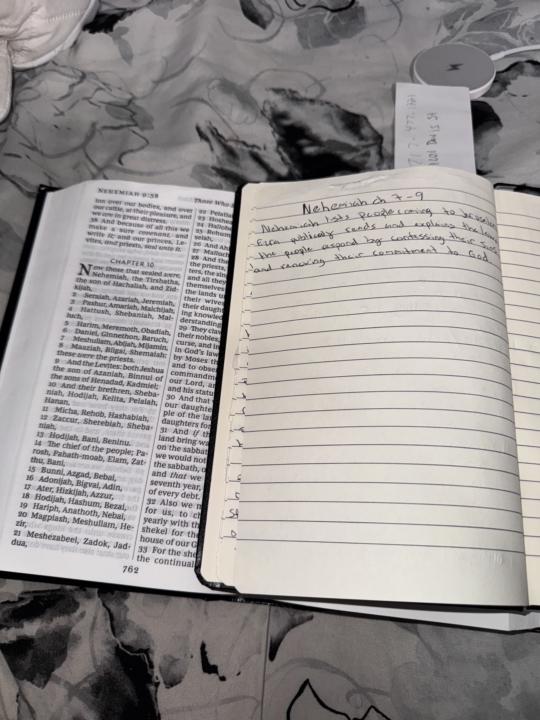 NEHEMIAH 9:38
ion over our bodies, and over
our cattle, at their pleasure, and
we are in great distress.
38 And because of all this we
make a sure covenant, and
write it; and our princes, Le-
vites, and priests, seal unto it.
CHAPTER 10
Now those that sealed were,
Nehemiah, the Tirshatha,
the son of Hachaliah, and Zid-
kijah,
2 Seraiah, Azariah, Jeremiah,
3 Pashur, Amariah, Malchijah,
4 Hattush, Shebaniah, Mal-
luch,
5 Harim, Meremoth, Obadiah,
6 Daniel, Ginnethon, Baruch,
7 Meshullam, Abijah, Mijamin,
8 Maaziah, Bilgai, Shemaiah:
these were the priests.
9 And the Levites: both Jeshua
the son of Azaniah, Binnui of
the sons of Henadad, Kadmiel;
10 And their brethren, Sheba-
niah, Hodijah, Kelita, Pelaiah,
Hanan,
11 Micha, Rehob, Hashabiah,
12 Zaccur, Sherebiah, Sheba-
niah,
13 Hodijah, Bani, Beninu.
14 The chief of the people; Pa-
rosh, Pahath-moab, Elam, Zat-
thu, Bani,
15 Bunni, Azgad, Bebai,
16 Adonijah, Bigvai, Adin,
17 Ater, Hizkijah, Azzur,
18 Hodijah, Hashum, Bezai,
19 Hariph, Anathoth, Nebai,
20 Magpiash, Meshullam, He-
zir,
21 Meshezabeel, Zadok, Jad-
dua,
762
Those Who
22 Pelatia
23 Hoshe
24 Hallohe
25 Rehum
26 And Ah
27 Malluch
28 And the
the priests,
ters, the sin
and all they
themselves
the lands u
their wives
their daught
ing knowled
derstanding
29 They clav
their nobles,
curse, and in
in God's law
by Moses th
and to obse
commandm
our Lord, an
and his statu
30 And that
our daughte
ple of the la
daughters fo
31 And if th
land bring wa
on the sabbat
we would not
the sabbath, o
and that we
seventh year,
of every debt.
32 Also we m
for us, to ch
yearly with th
shekel for the
house of our G
33 For the she
the continual
Nehemiah ch 7-9
Nehemiah lists people coming to
Ezra publicly reads and explains the law
the people respond by confessing their sins
and renewing their commitment to God.